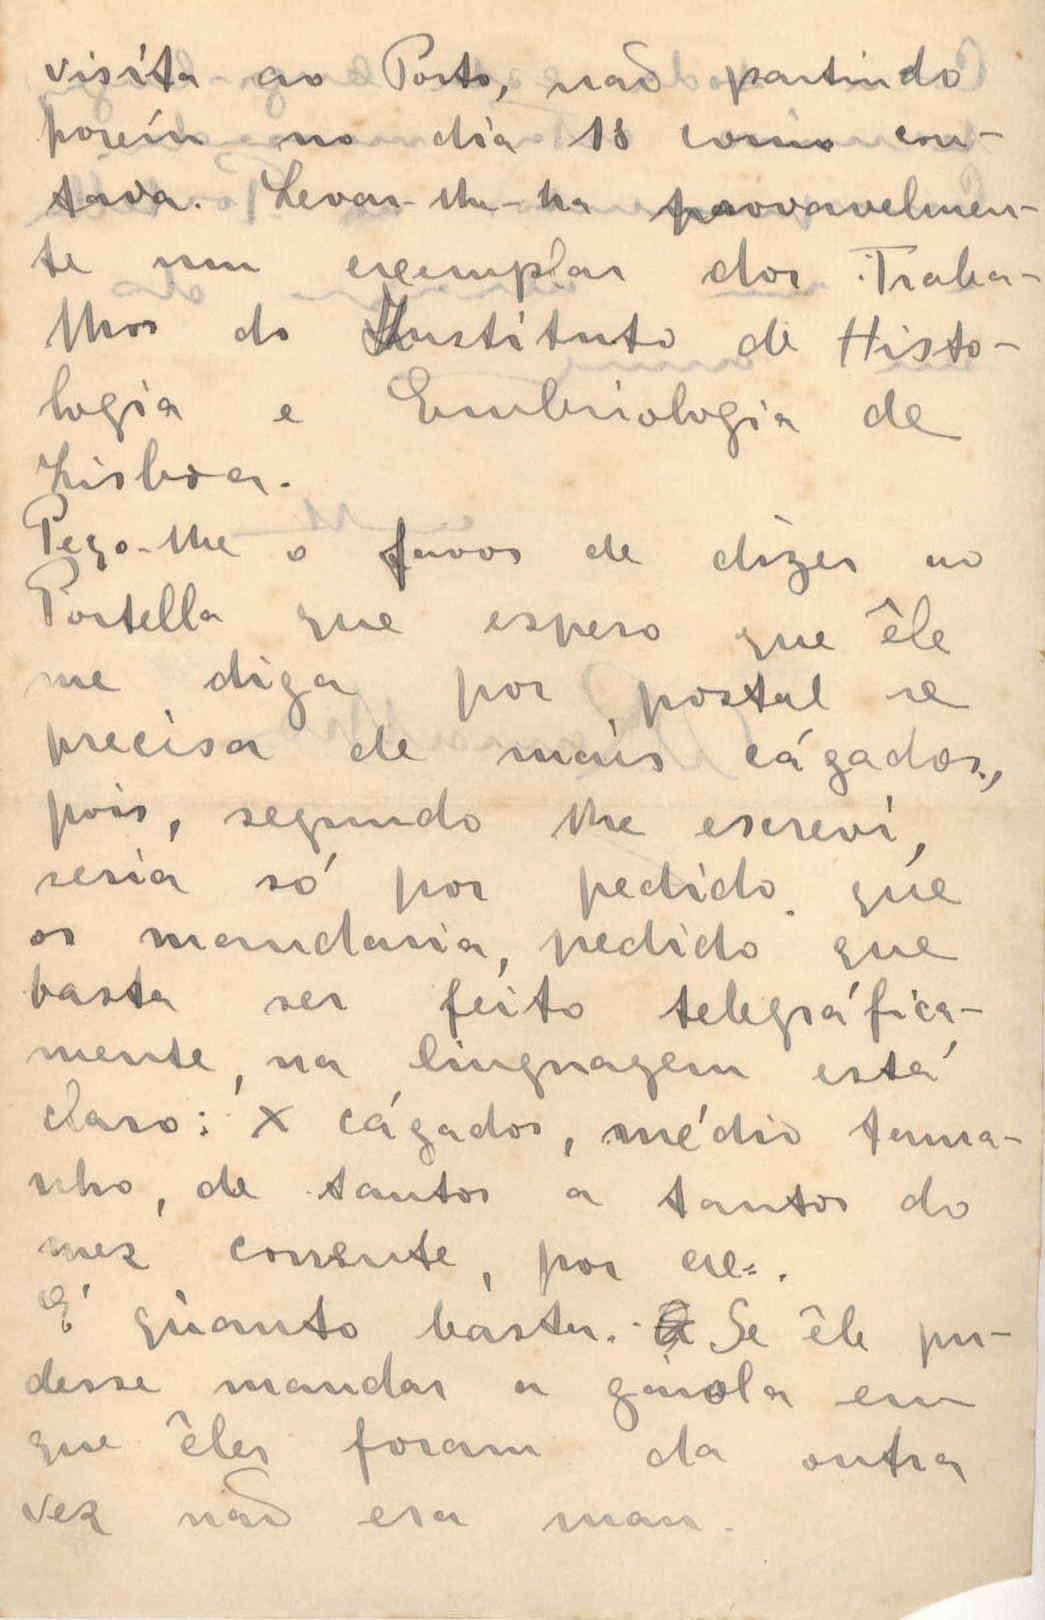 visita ao Porto, não partindo
porém no dia 18 como con-
tava. Levar-lhe-ha provavelmen-
te um exemplar dos Traba-
lhos do Instituto de Histo-
logia e Embriologia de
Lisboa.
Peço-lhe o favor de dizer ao
Portella que espero que êle
me diga por postal se
precisa de mais cágados,
pois, segundo lhe escrevi,
seria só por pedido que
os mandaria, pedido que
basta ser feito telegráfica-
mente, na linguagem está
claro: X cágados, médio tama-
nho, de tantos a tantos do
mez corrente, por ex=.
É quanto basta. Se êle pu-
desse mandar a gaiola em
que êles foram da outra
vez não era mau.